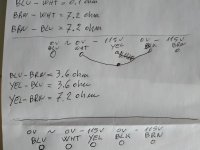 BLU - WHT = 0.1 ohm
BRN - WHT = 7.2 ohm
BRN - BLU = 7.2 ohm
0V ~ 0V - 115V 0V - 115V
BLU WHT YEL BLK BRN
BLU - BRN = 3.6 ohm
YEL - BLU = 3.6 ohm
YEL - BRN = 7.2 ohm
0V ~ 0V - 115V - 0V - 115V
BLU WHT YEL BLK BRN